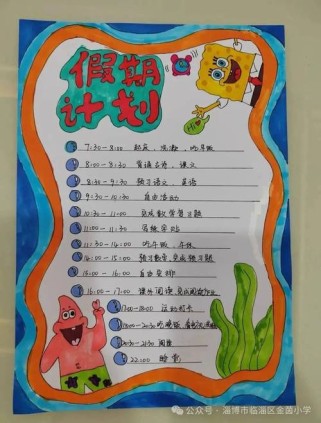 假期
计划
Hi
7:30-8:00 起床、洗漱、吃早饭
8:00-8:30 背诵古诗、课文
8:30-9:30 预习语文、英语
9:30-10:30 自由活动
10:30-11:00 完成数学习题
11:00-11:30 练字帖
11:30-14:00 吃午饭、午休
14:00-15:00 预习数学,完成预习题
15:00-16:00 自由安排
16:00-17:00 课外阅读,完成阅读
17:00-18:00 运动时长
18:00-20:30 吃晚饭
20:30-21:30 阅读
22:00 睡觉
公众号·淄博市临淄区金茵小学